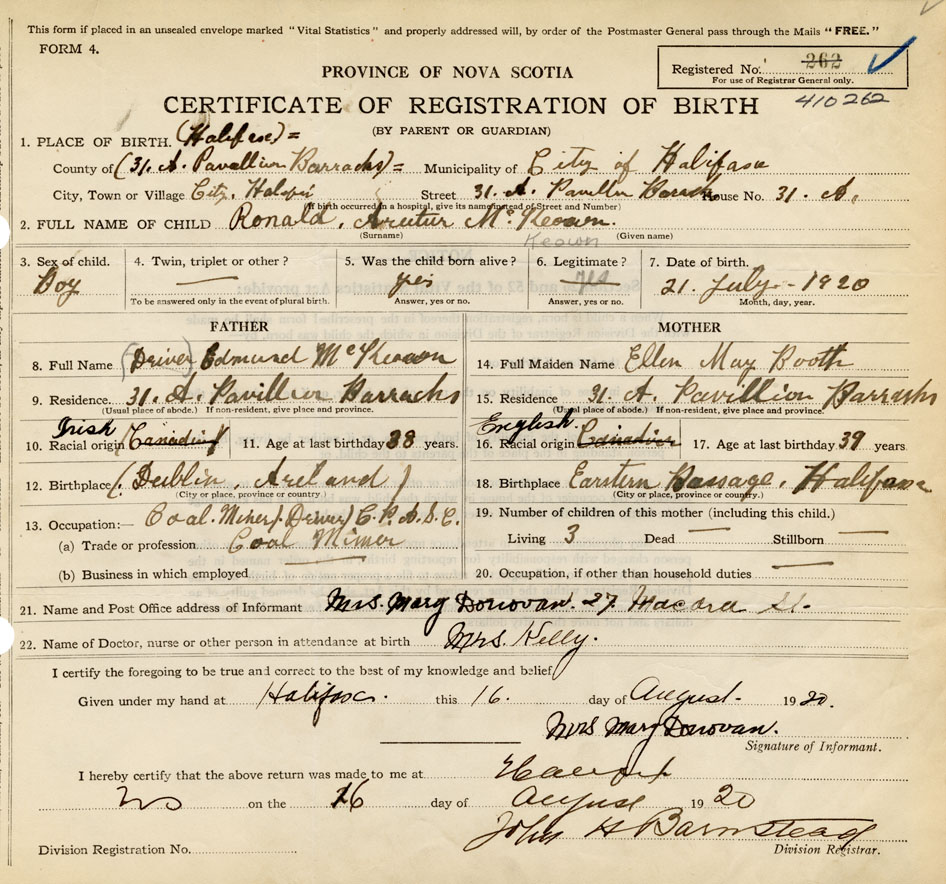 This form if placed in an unsealed envelope marked "Vital Statistics" and properly addressed will, by order of the Postmaster General pass through the Mails "FREE."
FORM 4.
PROVINCE OF NOVA SCOTIA
Registered No. 262
For use of Registrar General only.
410262
CERTIFICATE OF REGISTRATION OF BIRTH
(BY PARENT OR GUARDIAN)
1. PLACE OF BIRTH. (Halifax) =
County of (31. A. Pavallion Barracks) = Municipality of City of Halifax
City, Town or Village City, Street 31. A. Barracks House No. 31. A.
(If birth occurred in a hospital, give its name instead of Street and Number)
2. FULL NAME OF CHILD Ronald, Mc Keown.
(Surname) Keown (Given name)
3. Sex of child. 4. Twin, triplet or other? 5. Was the child born alive? 6. Legitimate? 7. Date of birth.
Boy — yes yes 21. July - 1920
To be answered only in the event of plural birth. Answer, yes or no. Answer, yes or no. Month, day, year.
FATHER MOTHER
8. Full Name (Driver) Edmund Mc Keown 14. Full Maiden Name Ellen May Booth
9. Residence. 31. A. Pavillion Barracks 15. Residence 31. A. Pavillion Barracks
(Usual place of abode.) If non-resident, give place and province. (Usual place of abode.) If non-resident, give place and province.
Irish English
10. Racial origin Canadian 11. Age at last birthday 38 years. 16. Racial origin Canadian 17. Age at last birthday 39 years.
12. Birthplace (Dublin, Areland) 18. Birthplace Eastern Passage, Halifax
(City or place, province or country.) (City or place, province or country.)
13. Occupation:— Coal. Miner (Driver) C. A. S. C. 19. Number of children of this mother (including this child.)
(a) Trade or profession Coal Minor Living 3 Dead — Stillborn —
(b) Business in which employed 20. Occupation, if other than household duties —
21. Name and Post Office address of Informant Mrs. Mary Donovan. 27 Macara St.
22. Name of Doctor, nurse or other person in attendance at birth Mrs. Kelly.
I certify the foregoing to be true and correct to the best of my knowledge and belief
Given under my hand at Halifax. this 16. day of August. 1920.
Mrs Mary Donovan.
Signature of Informant.
I hereby certify that the above return was made to me at Halifax
NS on the 16 day of August 1920
John H Barnstead
Division Registration No. Division Registrar.